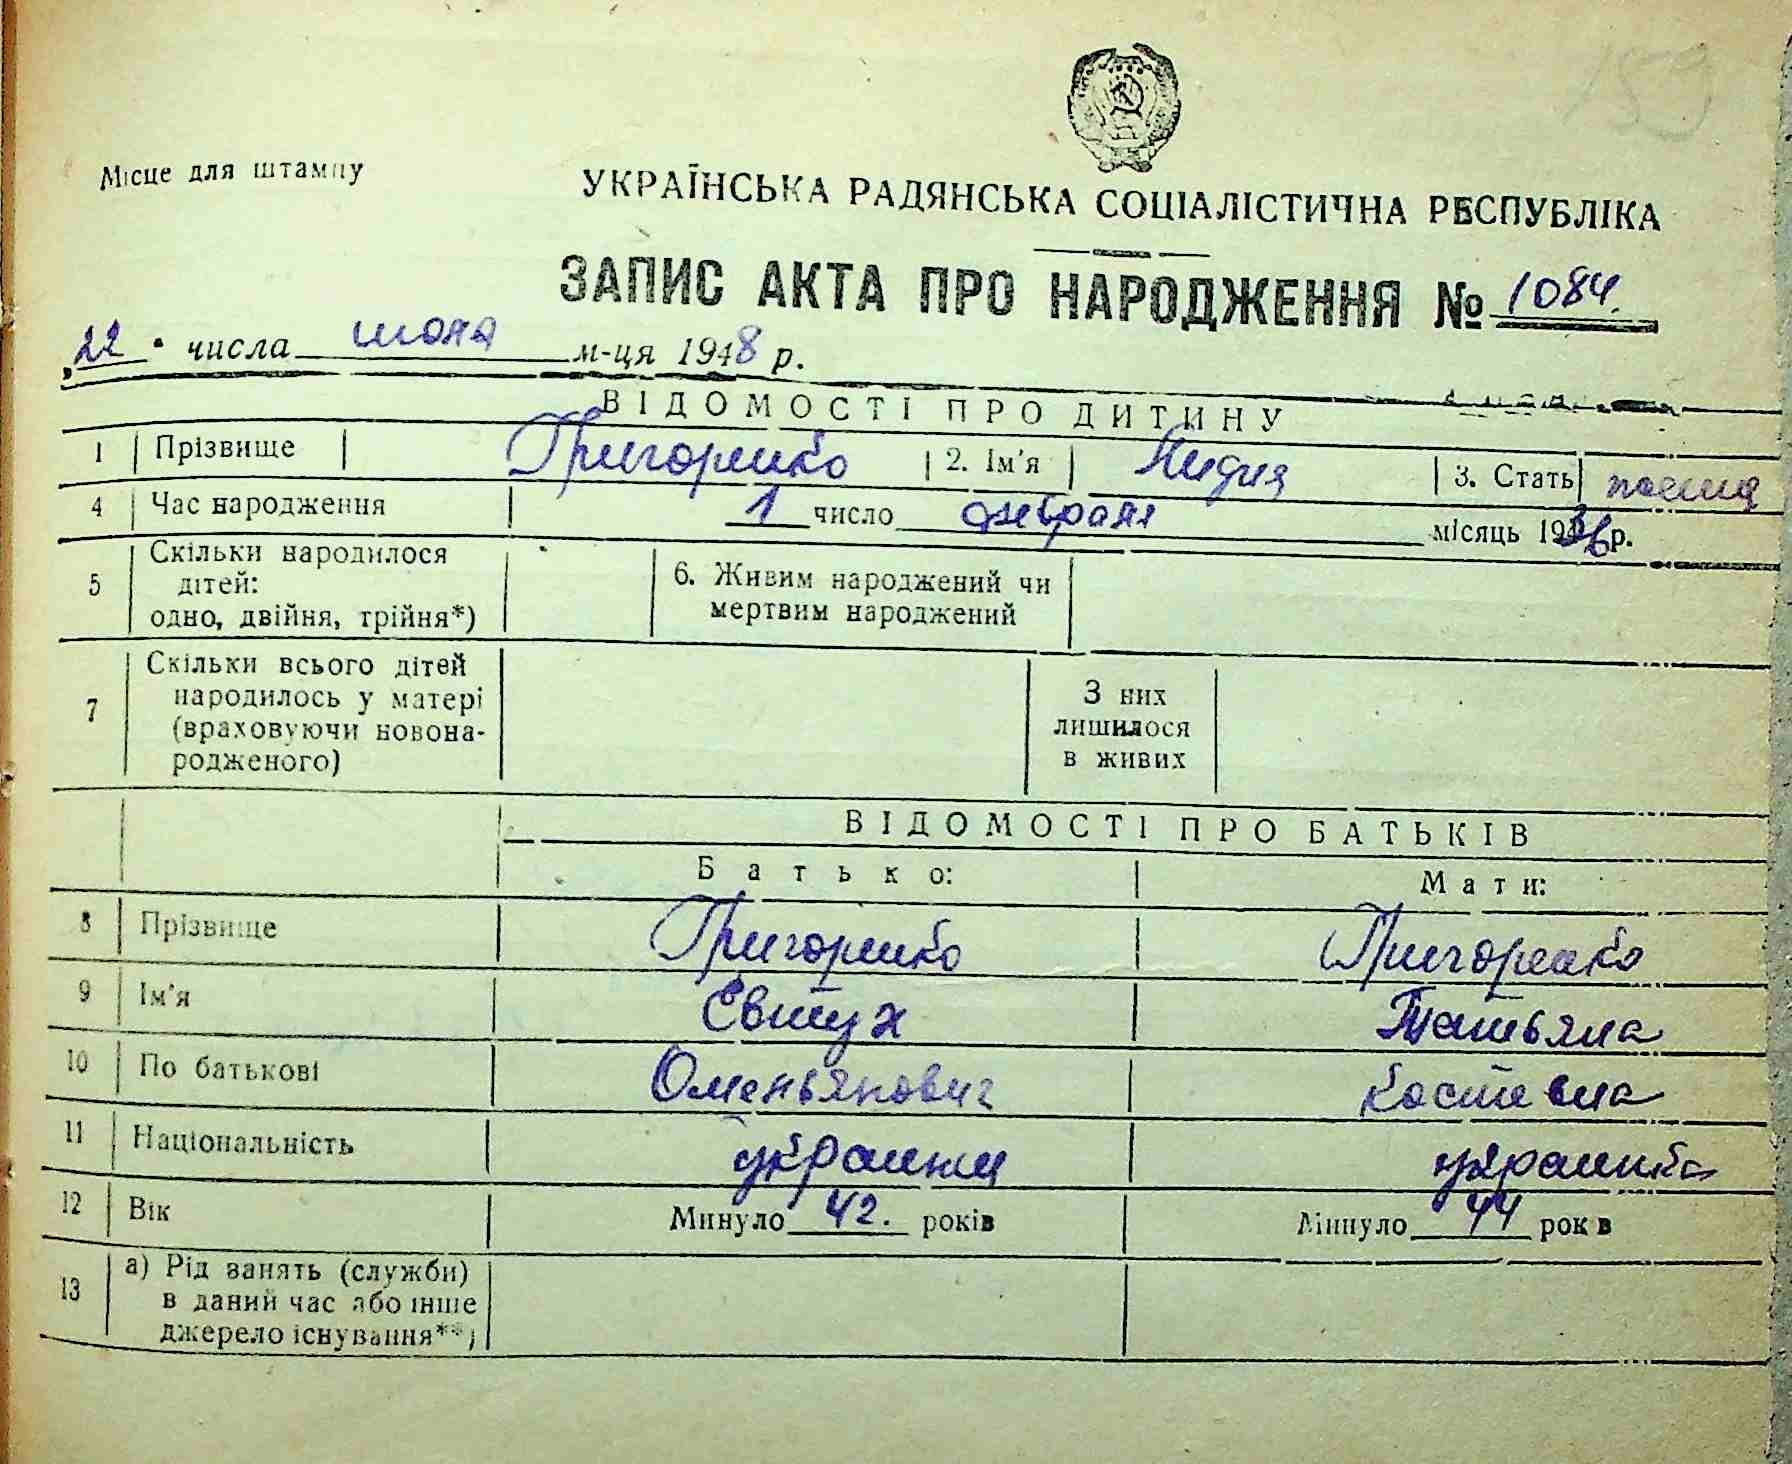 159
Місце для штампу
УКРАЇНСЬКА РАДЯНСЬКА СОЦІАЛІСТИЧНА РЕСПУБЛІКА
ЗАПИС АКТА ПРО НАРОДЖЕННЯ № 1084.
„22" числа июня м-ця 1948 р.
ВІДОМОСТІ ПРО ДИТИНУ
1 Прізвище Григоренко 2. Ім'я Лидия 3. Стать
4 Час народження 1 число февраля місяць 1936 р.
5 Скільки народилося дітей: одно, двійня, трійня*) 6. Живим народжений чи мертвим народжений
7 Скільки всього дітей народилось у матері (враховуючи новонародженого) З них лишилося в живих
ВІДОМОСТІ ПРО БАТЬКІВ
Батько: Мати:
8 Прізвище Григоренко Григоренко
9 Ім'я Евтух Татьяна
10 По батькові Оменьянович Костевна
11 Національність украинец украинка
12 Вік Минуло 42. років Минуло 44 років
13 а) Рід занять (служби) в даний час або інше джерело існування**)